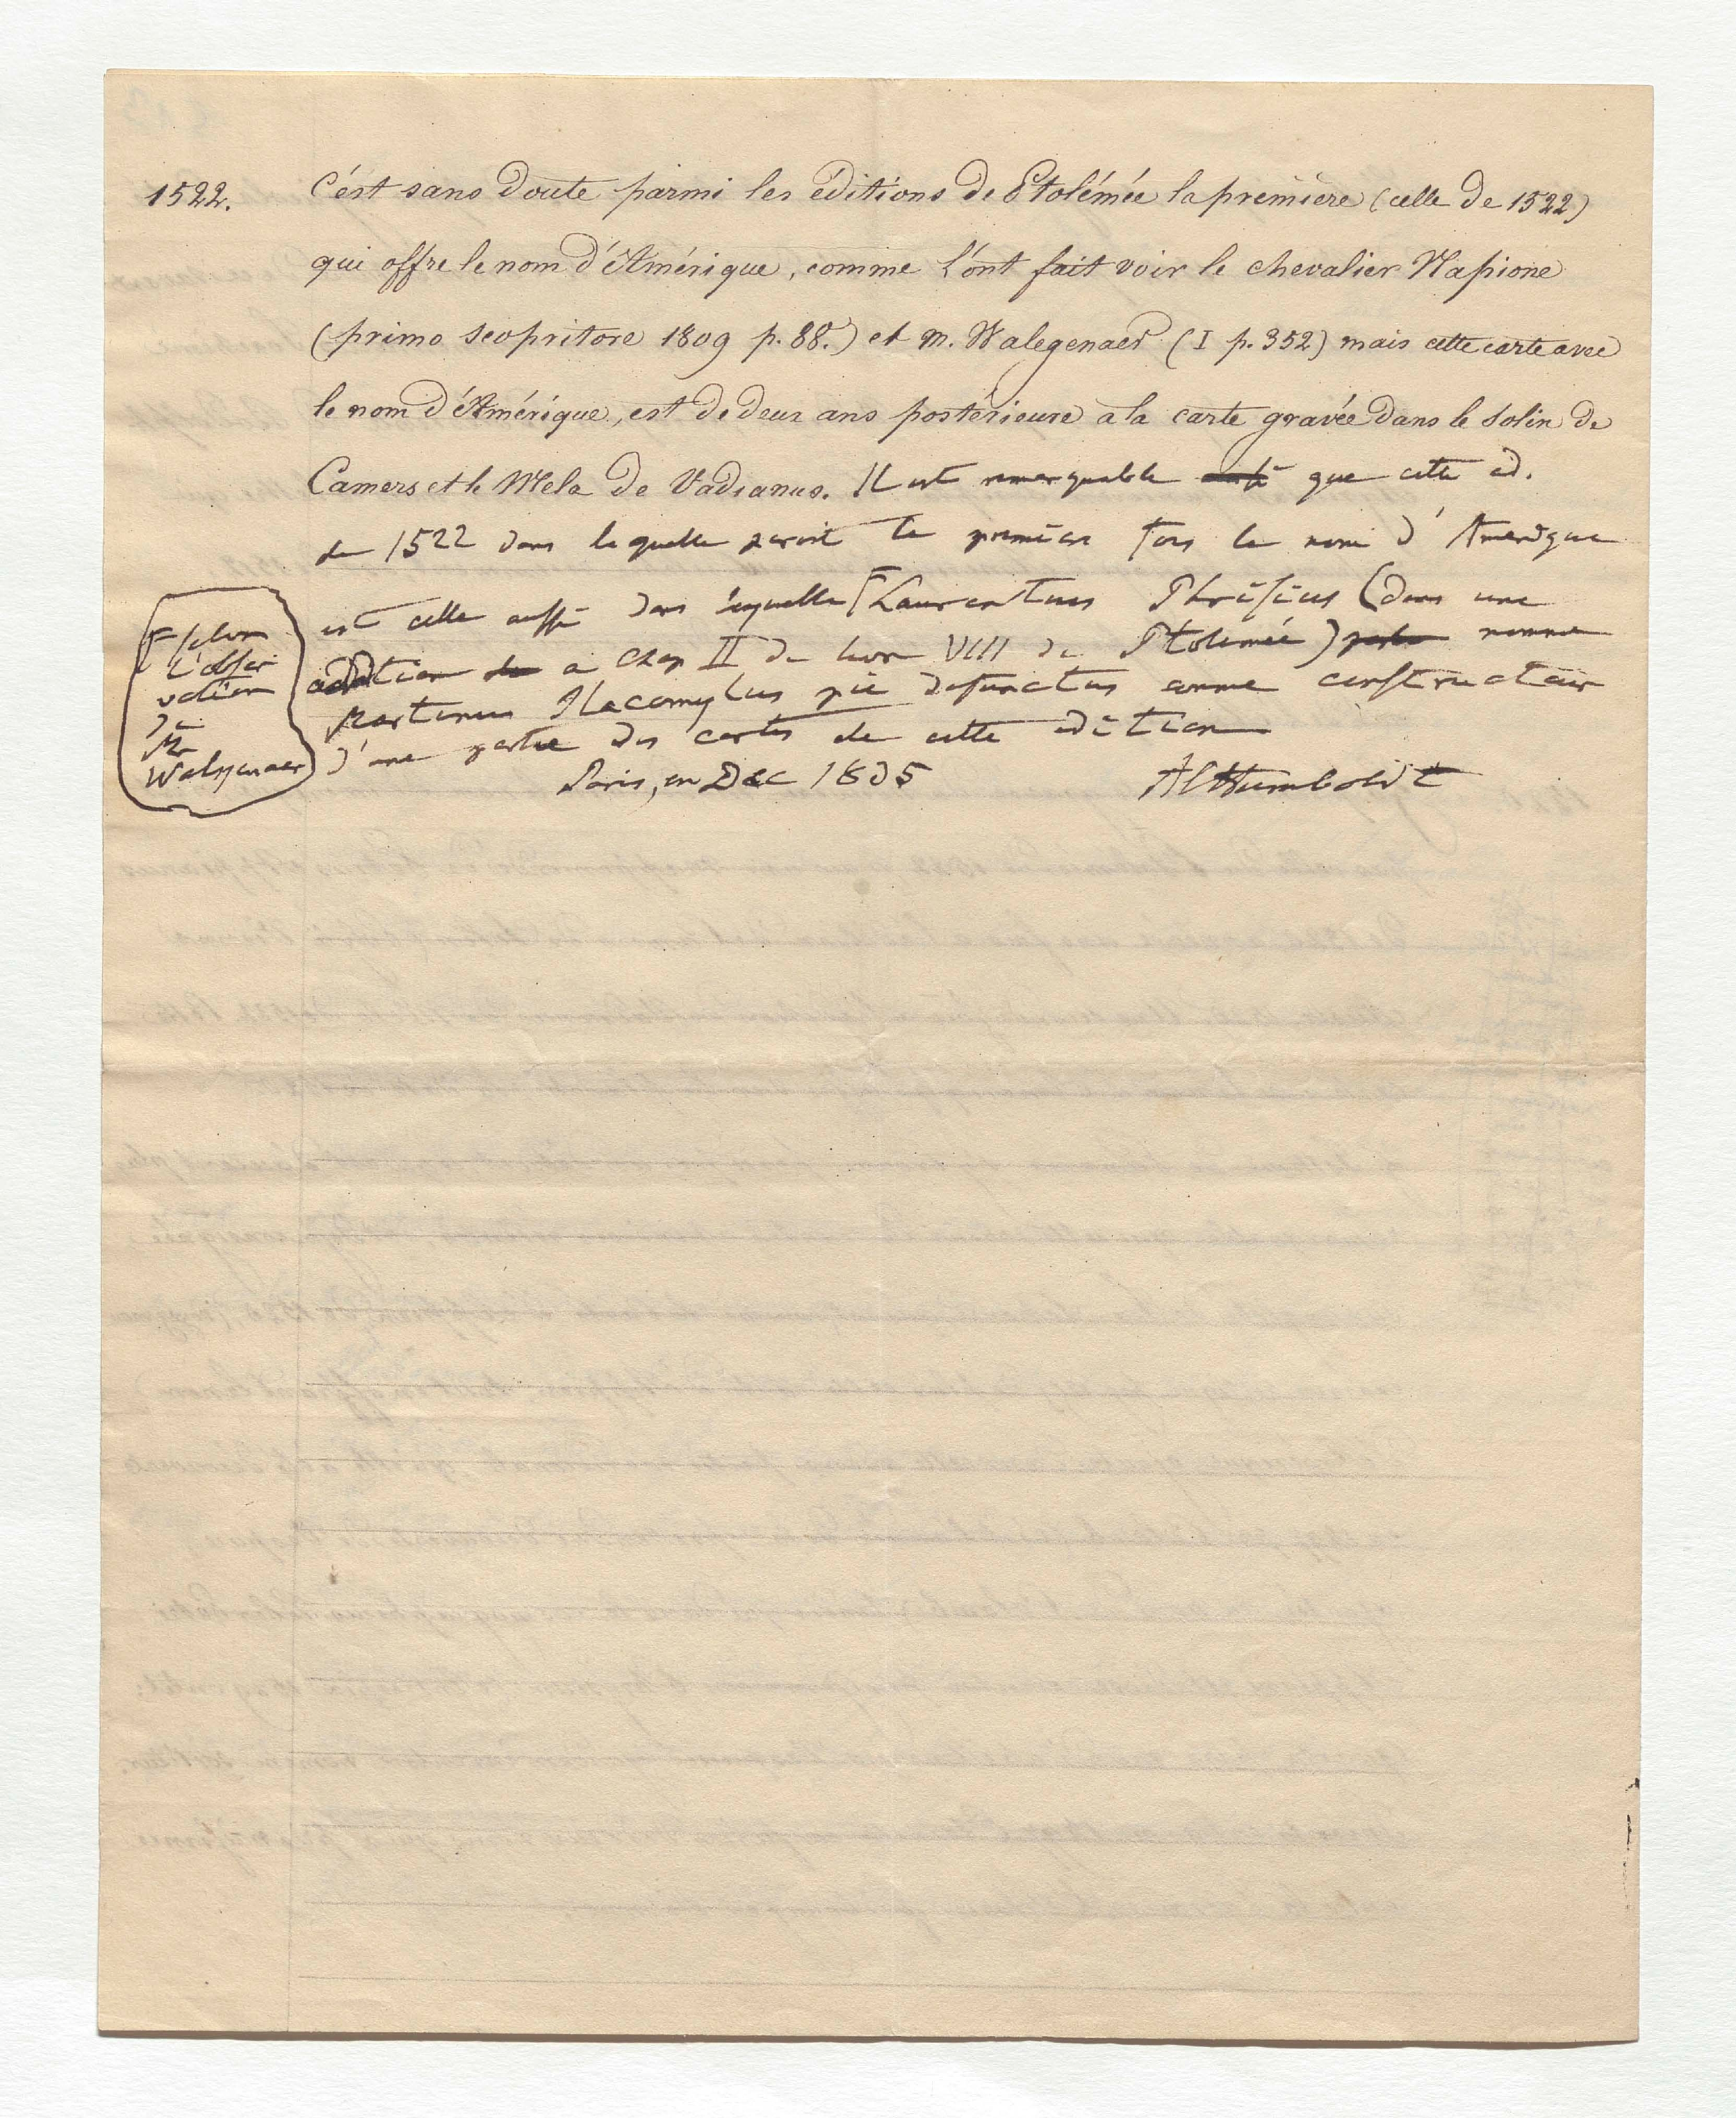 1522. C'ést sans doute parmi les éditions de Ptolémée la première (celle de 1522)
qui offre le nom d'Amérique, comme l'ónt fait voir le chevalier Napione
(primo scopritore 1809 p. 88.) et M. Walegenaer (I p. 352) mais cette carte avec
le nom d'Amérique, est de deux ans postérieure a la carte gravée dans le Solin de
Camers et le Mela de Vadianus. Il est remarquable que cette ed.
de 1522 dans laquelle paroit la première fois le nom d'Amerique
est celle aussi dans laquelle Γ Laurentius Phrisius (dans une
addition a Chap II du livre VIII de Ptolemée) nomme
Martinus Ilacomylus pie defunctus comme constructeur
d'une partie des cartes de cette edition
Paris, en Dec 1835 AlHumboldt
Γ selon
l'obser
vation
de
Mr
Walkenaer